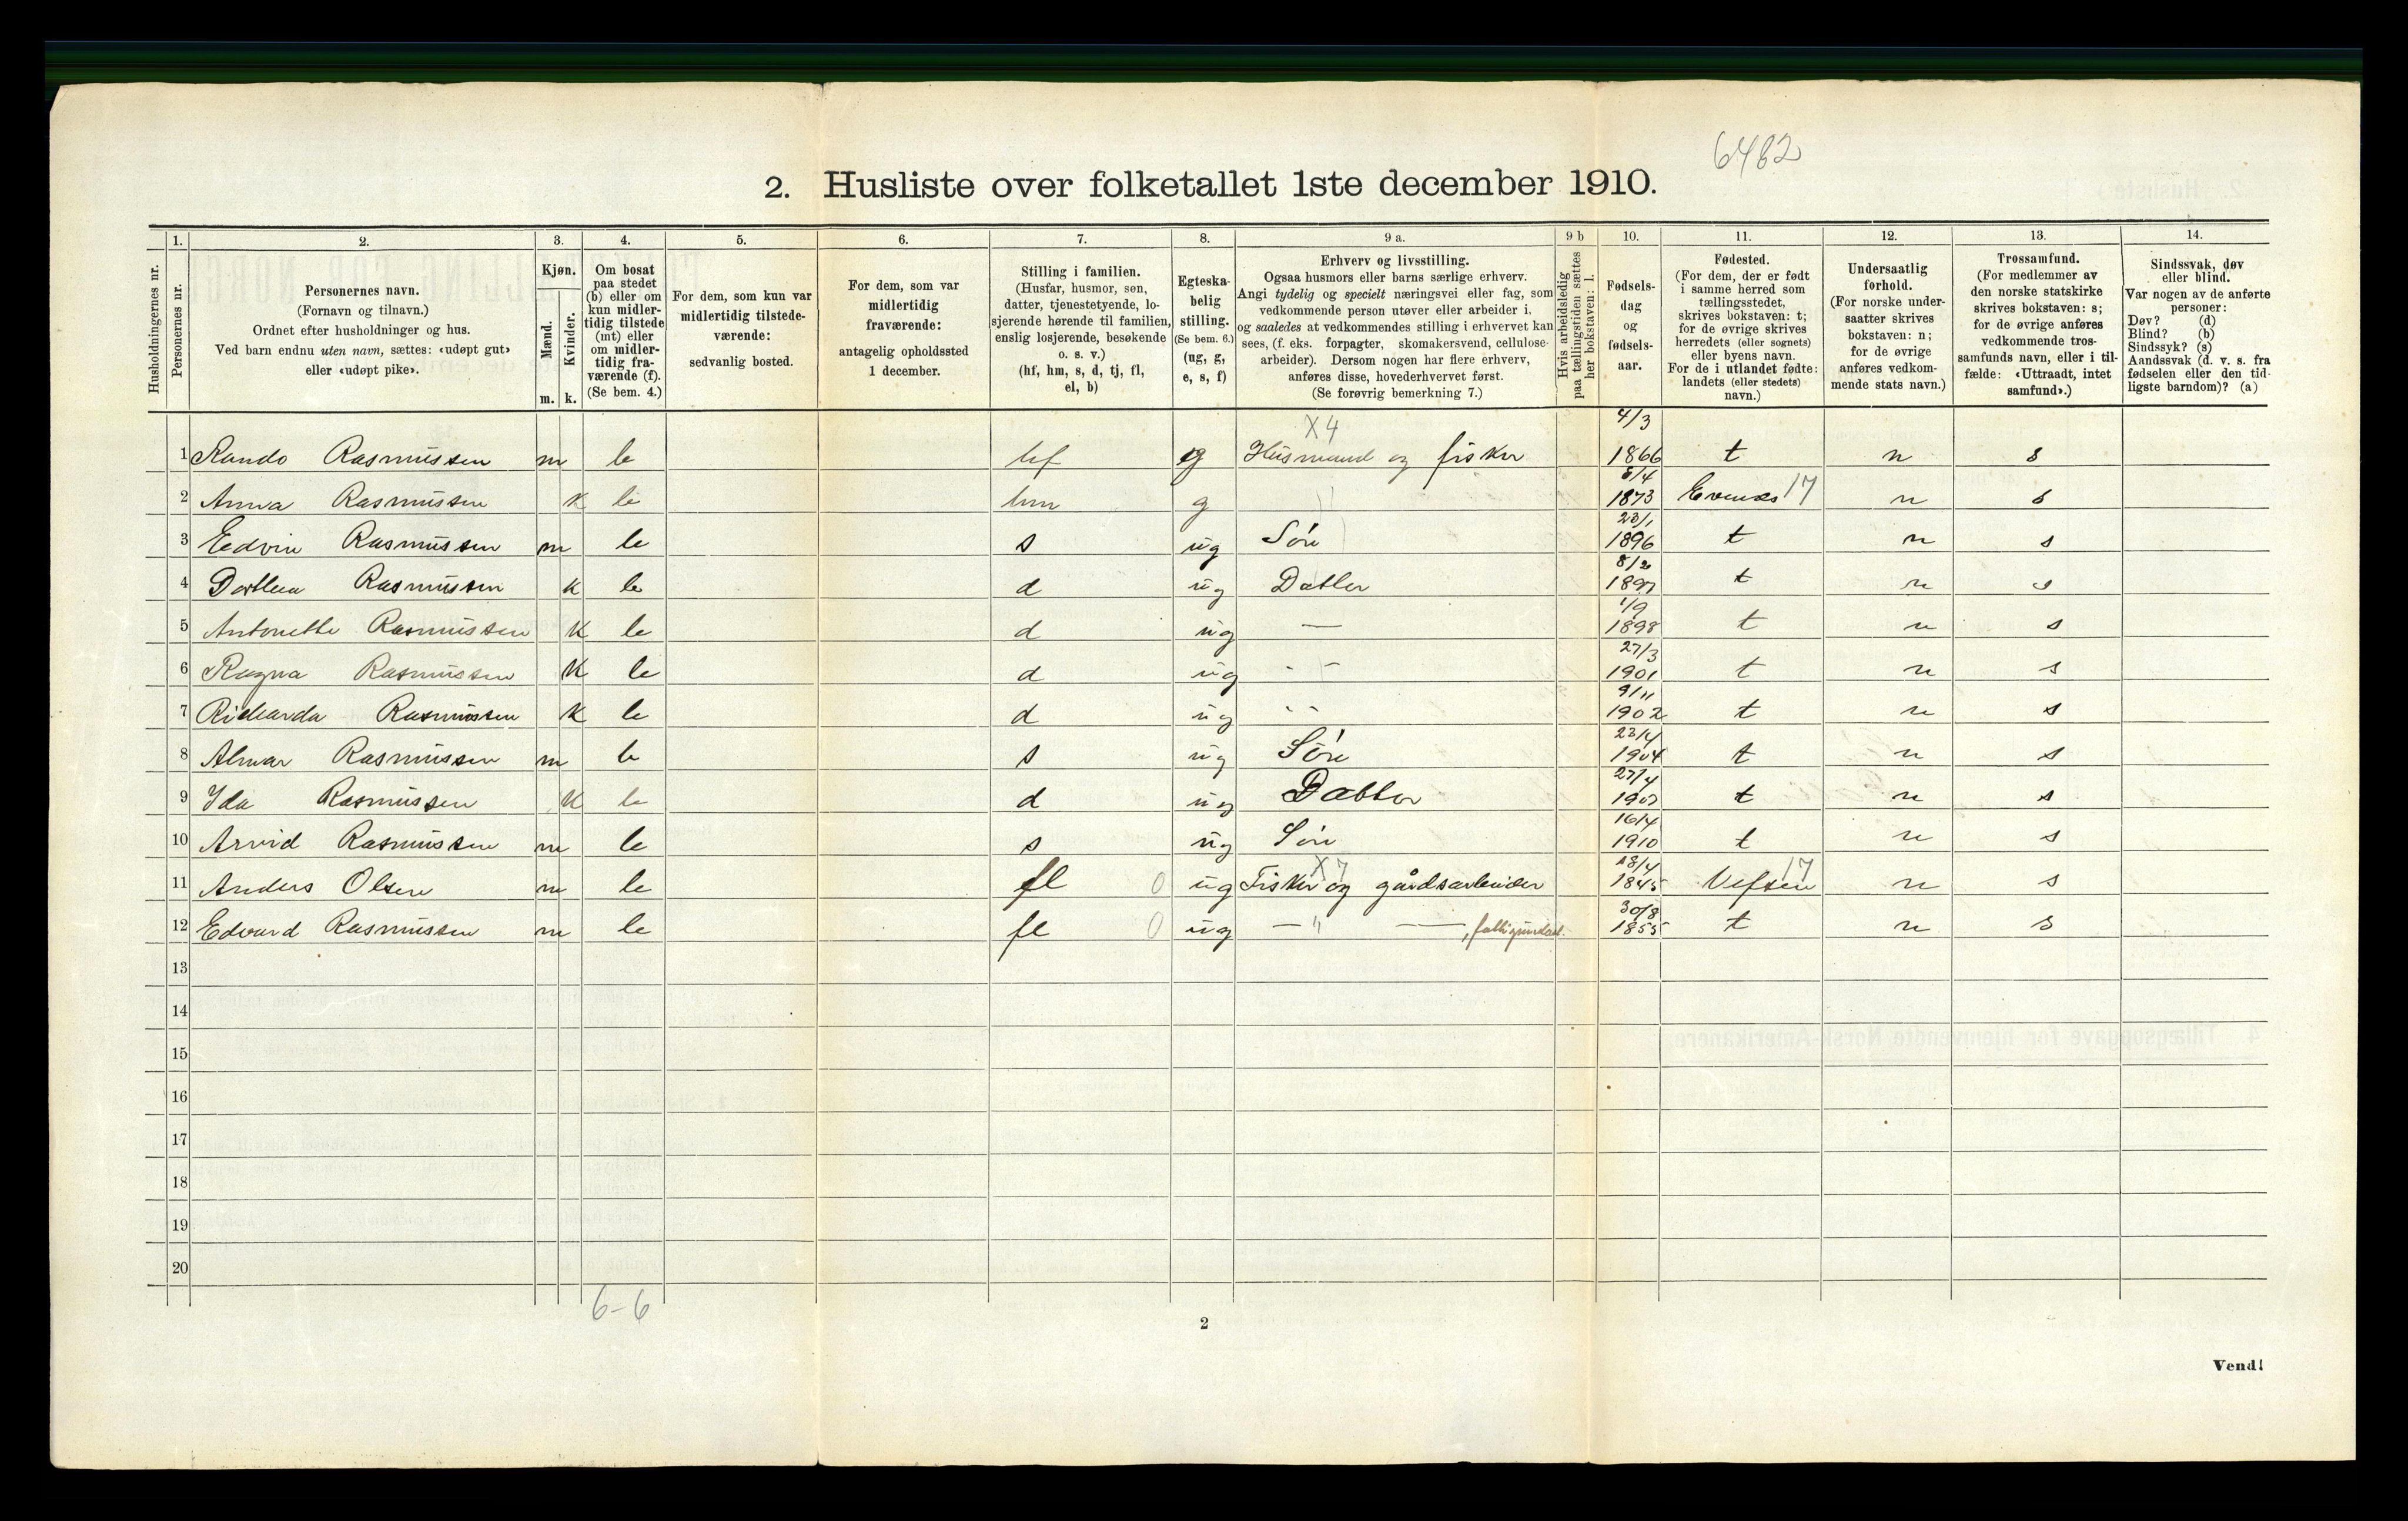 6482
2. Husliste over folketallet 1ste december 1910.
Husholdningernes nr.
1. Personernes nr.
2. Personernes navn.
(Fornavn og tilnavn.)
Ordnet efter husholdninger og hus.
Ved barn endnu uten navn, sættes: «udøpt gut»
eller «udøpt pike».
3. Kjøn.
Mænd. m.
Kvinder. k.
4. Om bosat
paa stedet
(b) eller om
kun midler-
tidig tilstede
(mt) eller
om midler-
tidig fra-
værende (f).
(Se bem. 4.)
5. For dem, som kun var
midlertidig tilstede-
værende:
sedvanlig bosted.
6. For dem, som var
midlertidig
fraværende:
antagelig opholdssted
1 december.
7. Stilling i familien.
(Husfar, husmor, søn,
datter, tjenestetyende, lo-
sjerende hørende til familien,
enslig losjerende, besøkende
o. s. v.)
(hf, hm, s, d, tj, fl,
el, b)
8. Egteska-
belig
stilling.
(Se bem. 6.)
(ug, g,
e, s, f)
9 a. Erhverv og livsstilling.
Ogsaa husmors eller barns særlige erhverv.
Angi tydelig og specielt næringsvei eller fag, som
vedkommende person utøver eller arbeider i,
og saaledes at vedkommendes stilling i erhvervet kan
sees, (f. eks. forpagter, skomakersvend, cellulose-
arbeider). Dersom nogen har flere erhverv,
anføres disse, hovederhvervet først.
(Se forøvrig bemerkning 7.)
9 b Hvis arbeidsledig
paa tællingstiden sættes
her bokstaven: l.
10. Fødsels-
dag
og
fødsels-
aar.
11. Fødested.
(For dem, der er født
i samme herred som
tællingsstedet,
skrives bokstaven: t;
for de øvrige skrives
herredets (eller sognets)
eller byens navn.
For de i utlandet fødte:
landets (eller stedets)
navn.)
12. Undersaatlig
forhold.
(For norske under-
saatter skrives
bokstaven: n;
for de øvrige
anføres vedkom-
mende stats navn.)
13. Trossamfund.
(For medlemmer av
den norske statskirke
skrives bokstaven: s;
for de øvrige anføres
vedkommende tros-
samfunds navn, eller i til-
fælde: «Uttraadt, intet
samfund».)
14. Sindssvak, døv
eller blind.
Var nogen av de anførte
personer:
Døv? (d)
Blind? (b)
Sindssyk? (s)
Aandssvak (d. v. s. fra
fødselen eller den tid-
ligste barndom)? (a)
X4 4/3
1 Rando Rasmussen m b hf g Husmand og fisker 1866 t n s
2 Anna Rasmussen k b hm g 8/4 1873 Evenes 17 n s
3 Eedvin Rasmussen m b s ug Søn 23/1 1896 t n s
4 Dorthea Rasmussen k b d ug Datter 1897 t n s
5 Antonette Rasmussen k b d ug — 1/9 1898 t n s
6 Ragna Rasmussen k b d ug - - 27/3 1901 t n s
7 Richarda Rasmussen k b d ug - - 9/11 1902 t n s
8 Almar Rasmussen m b s ug Søn 23/4 1904 t n s
9 Ida Rasmussen k b d ug Datter 27/4 1907 t n s
10 Arvid Rasmussen m b s ug Søn 16/4 1910 t n s
11 Anders Olsen m b fl 0 ug Fisker og gårdsarbeider X7 1845 Vefsen 17 n s
12 Edvard Rasmussen m b fl 0 ug — " — 30/8 1855 t n s
13
14
15
16
17
18
19
20
6-6
2
Vend!